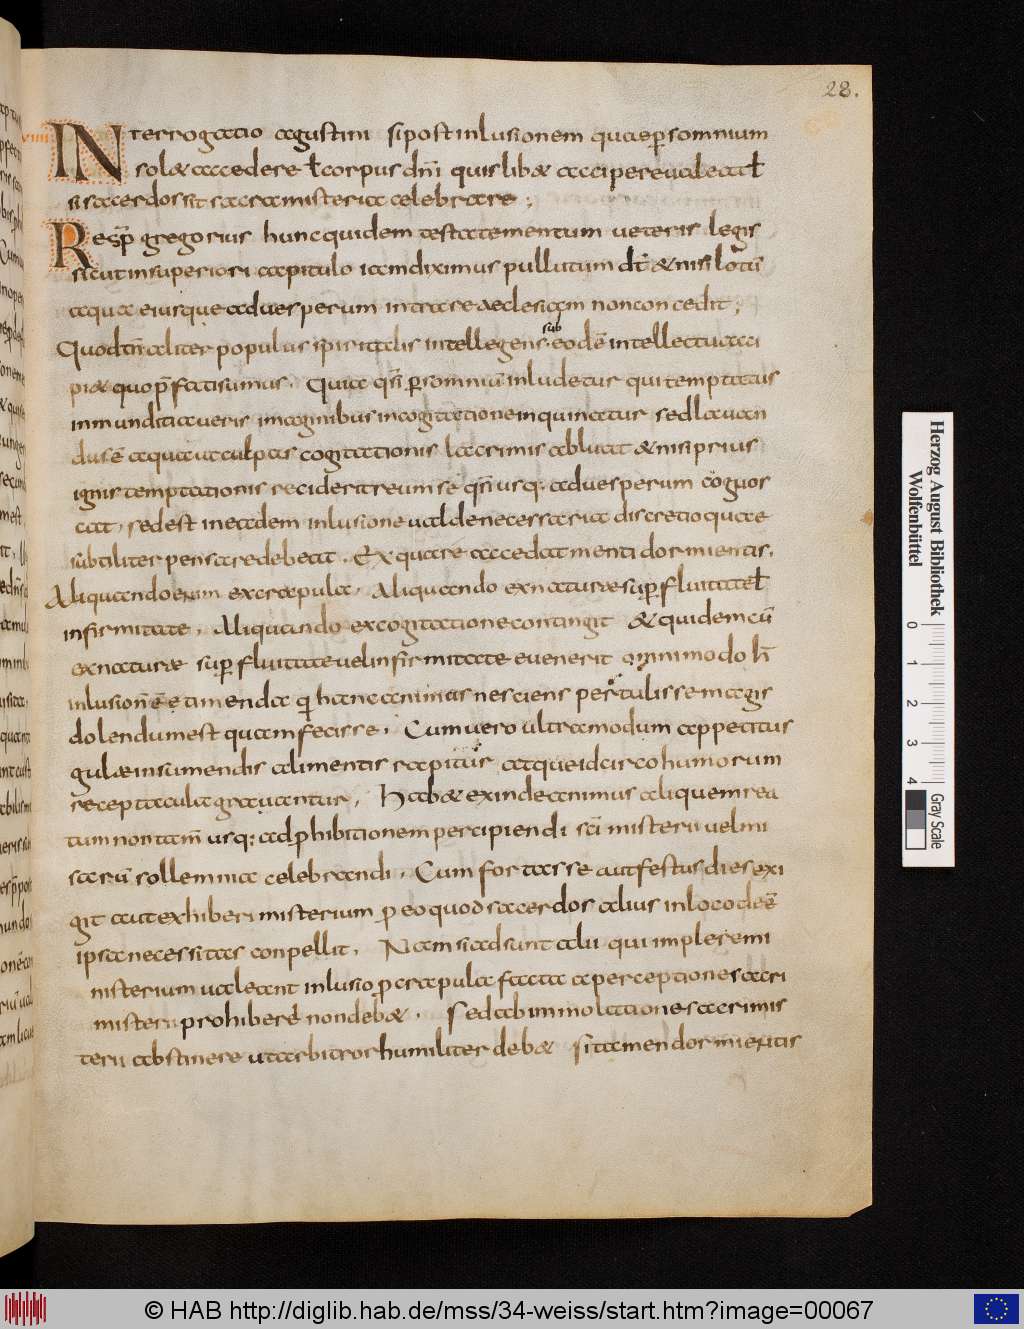 28.
INterrogatio agustini si post inlusionem quae per somnium
sol& accedere ł corpus dn̄i quislib& accipere ualeat ł
si sacerdos sit sacra misteria celebrare;
Resp̄ gregorius hunc quidem testamentum ueteris legis
sicut in superiori capitulo iam diximus pullutum dt̄ & nisi lotū
aqua eiusque ad uesperum intrare aeclesiam non concedit;
Quod tn̄ aliter populus spiritalis intellegens sub eodē intellectu acci
pi& quo p̄fati sumus. Quia qs̄i ꝑ somniū inludetur qui temptatus
inmunditia ueris imaginibus in cogitatione inquinatur sed lauan
dus ē aqua ut culpas cogitationis lacrimis abluat & nisi prius
ignis temptationis reciderit reum sē qs̄i usq: ad uesperum cognos
cat, sed est in eadem inlusione ualde necessaria discretio quae
subtiliter pensare debeat. Ex qua re accedat menti dormientis,
Aliquando enim ex crapula, Aliquando ex naturae suꝑfluitate ł
infirmitate, Aliquando ex cogitatione contingit & quidem cū
ex naturae suꝑfluitate uel infirmitate euenerit omnimodo h̄
inlusion̄ ē timenda q̄ hanc animus nesciens pertulisse magis
dolendum est quam fecisse. Cum uero ultra modum appetitus
gulae in sumendis alimentis rapitur atque idcirco humorum
receptacula grauantur, Hab& exinde animus aliquem rea
tum non tam̄ usq: ad ꝓhibitionem percipiendi sc̄i misterii uel mi
sarū sollemnia celebrandi, Cum fortasse aut festus dies exi
git aut exhiberi misterium ꝓ eo quod sacerdos alius in loco deē
ipsa necessitas conpellit, Nam si adsunt alii qui implere mi
nisterium ualeant inlusio ꝓ crapula facta a perceptione sacri
misterii prohibere non deb&. Sed ab immolatione sacri mis
terii abstinere ut arbitror humiliter deb& si tamen dormientis
Herzog August Bibliothek
Wolfenbüttel
0 1 2 3 4
Gray Scale
© HAB http://diglib.hab.de/mss/34-weiss/start.htm?image=00067